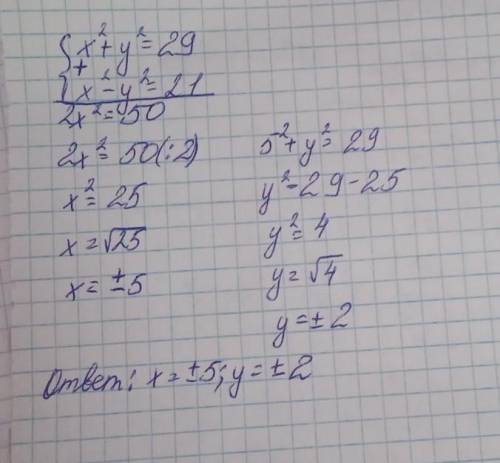 {x²+y²=29
+
{x²-y²=21
2x²=50
2x²=50(:2)
x²=25
x=√25
x=±5
5²+y²=29
y²-29-25
y²=4
y=√4
y=±2
Ответ: x=±5; y=±2